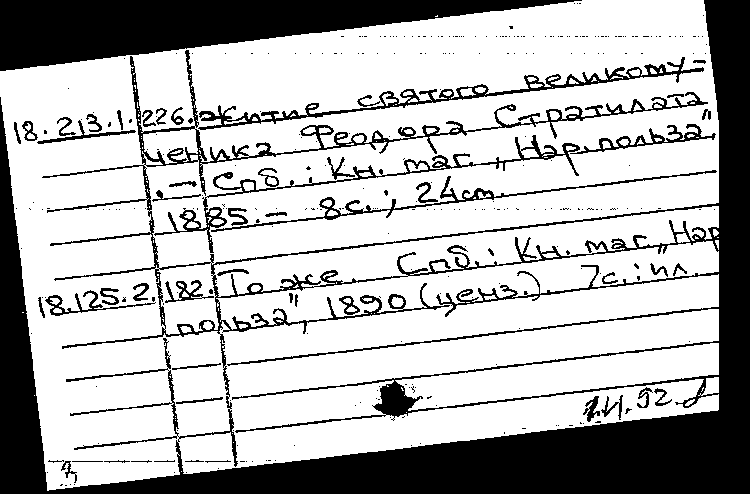 18.213.1.226. Житие святого великому-
ченика Феодора Стратилата
.— Спб.: Кн. маг. „Нар. польза",
1885.— 8с.; 24см.
18.125.2.182. То же. Спб.: Кн. маг. „Нар.
польза", 1890 (ценз.). 7с.: ил.